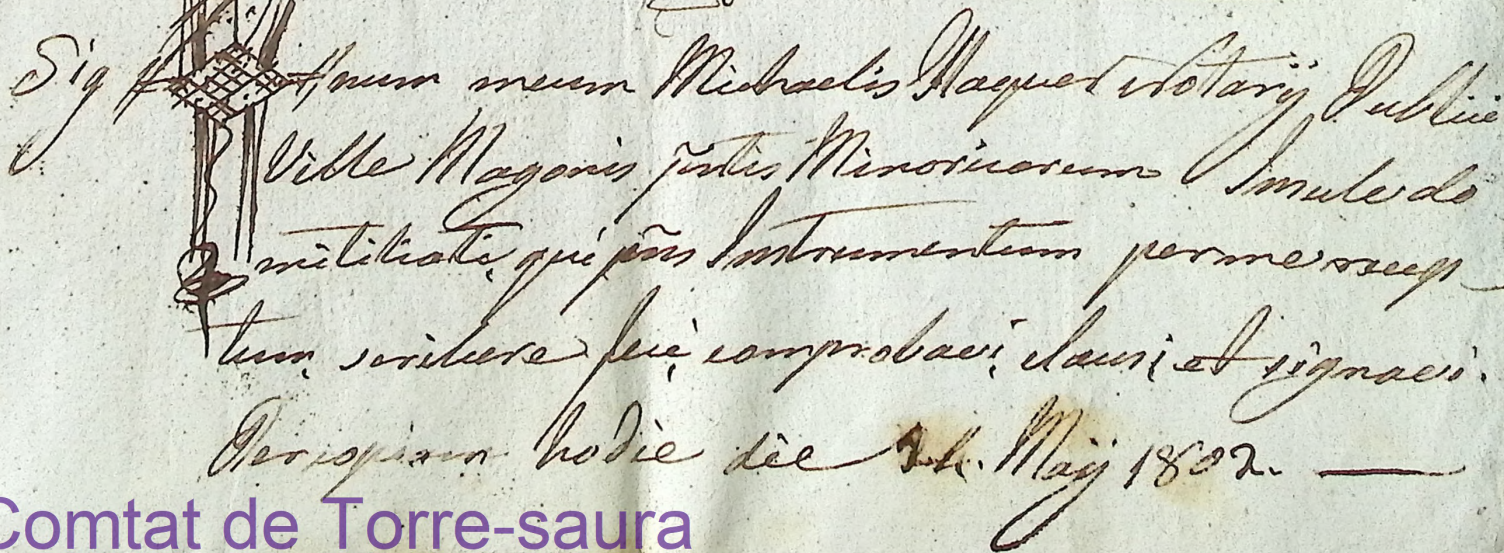 Sig num meum Michaelis Flaquer Notarij Publici
Ville Magonis pntis Minoricarum Insule do
miciliati, qui pñs Instrumentum per me recep
tum, scribere feci, comprobavi, clausi, et signavi.
hodie die Maij 1802.
Comtat de Torre-saura